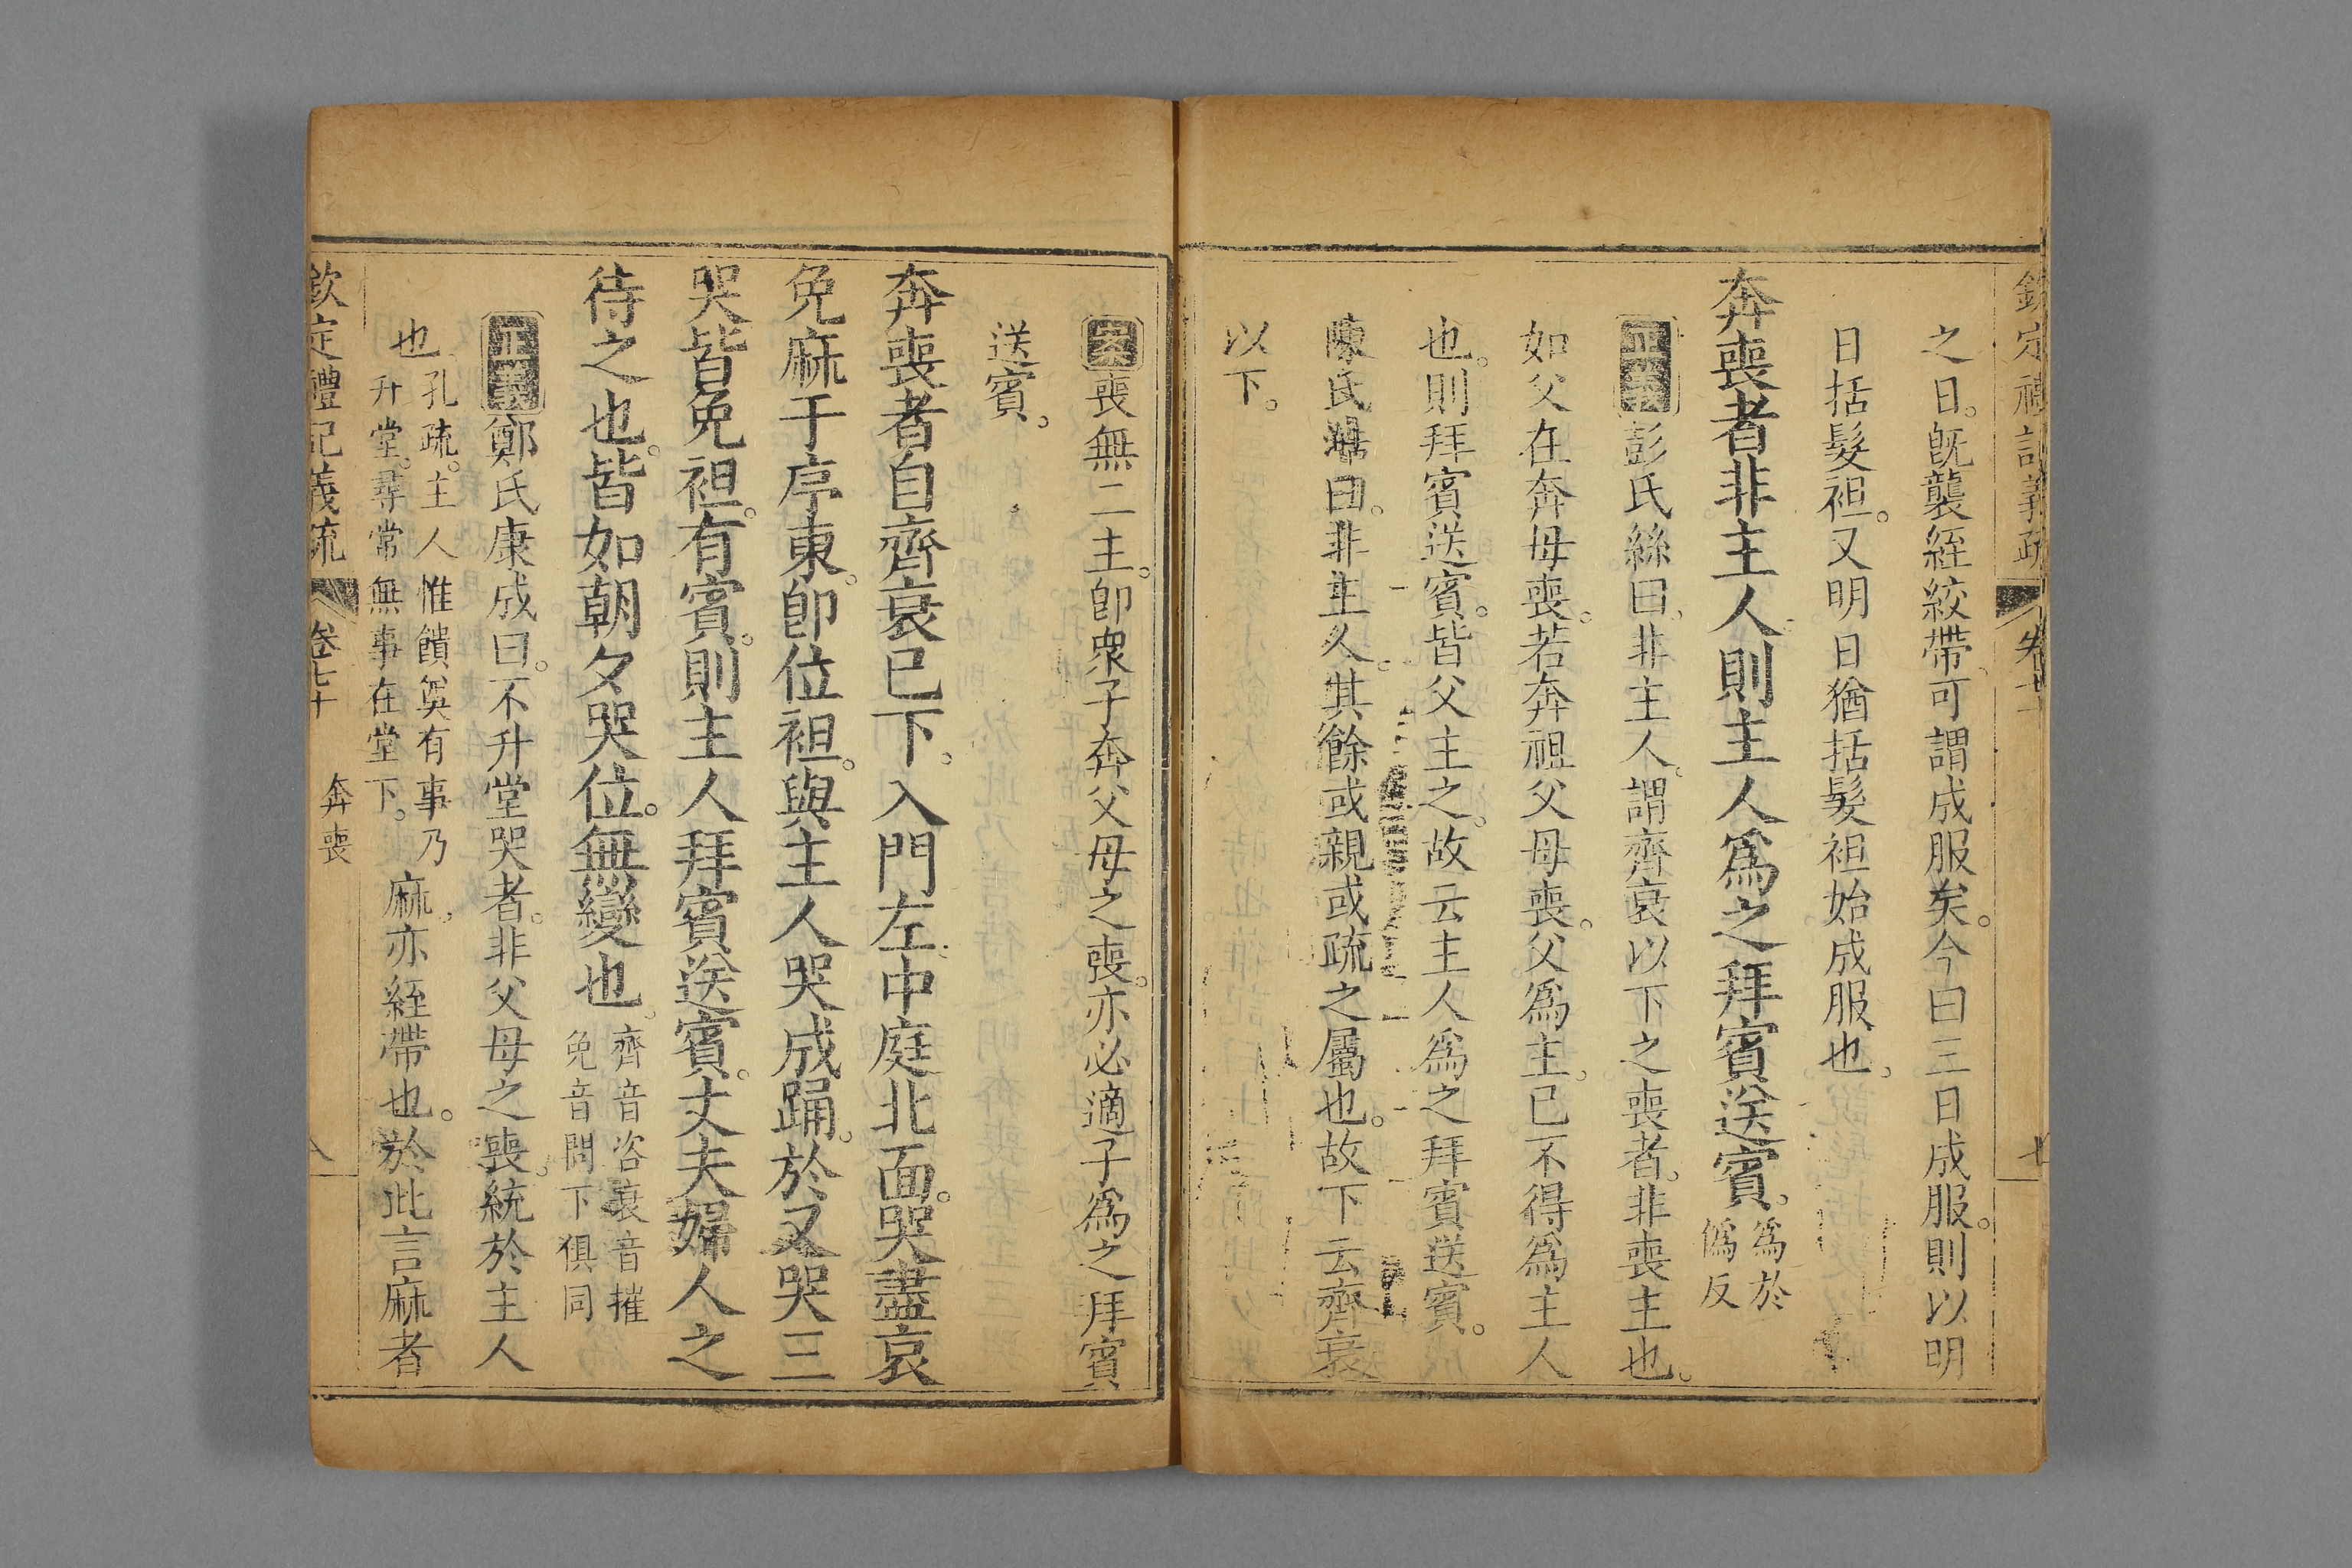 欽定禮記義疏 卷七十 七
之日。既襲絰絞帶。可謂成服矣。今曰三日成服。則以明
日括髮袒。又明日猶括髮袒始成服也。
奔喪者非主人。則主人爲之拜賓送賓。爲於僞反
正義彭氏絲曰。非主人。謂齊衰以下之喪者。非喪主也。
如父在奔母喪。若奔祖父母喪。父爲主。已不得爲主人
也。則拜賓送賓。皆父主之。故云主人爲之拜賓送賓。
陳氏澔曰。非主人。其餘或親或疏之屬也。故下云齊衰
以下。
案喪無二主。卽衆子奔父母之喪。亦必適子爲之拜賓
送賓。
奔喪者自齊衰已下。入門左。中庭北面。哭盡哀
免麻于序東。卽位袒。與主人哭成踊。於又哭三
哭皆免袒。有賓。則主人拜賓送賓。丈夫婦人之
待之也。皆如朝夕哭位。無變也。齊音咨衰音摧免音問下俱同
正義鄭氏康成曰。不升堂哭者。非父母之喪。統於主人
也。孔疏。主人惟饋奠有事乃升堂。尋常無事在堂下。麻。亦絰帶也。於此言麻者
欽定禮記義疏 卷七十 奔喪 八